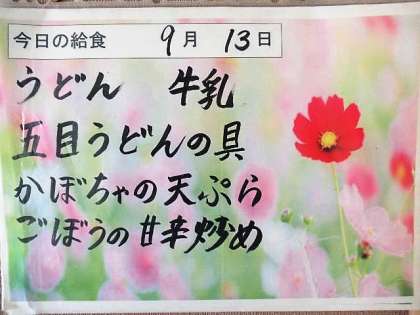 今日の給食 9月 13日
うどん 牛乳
五目うどんの具
かぼちゃの天ぷら
ごぼうの甘辛炒め